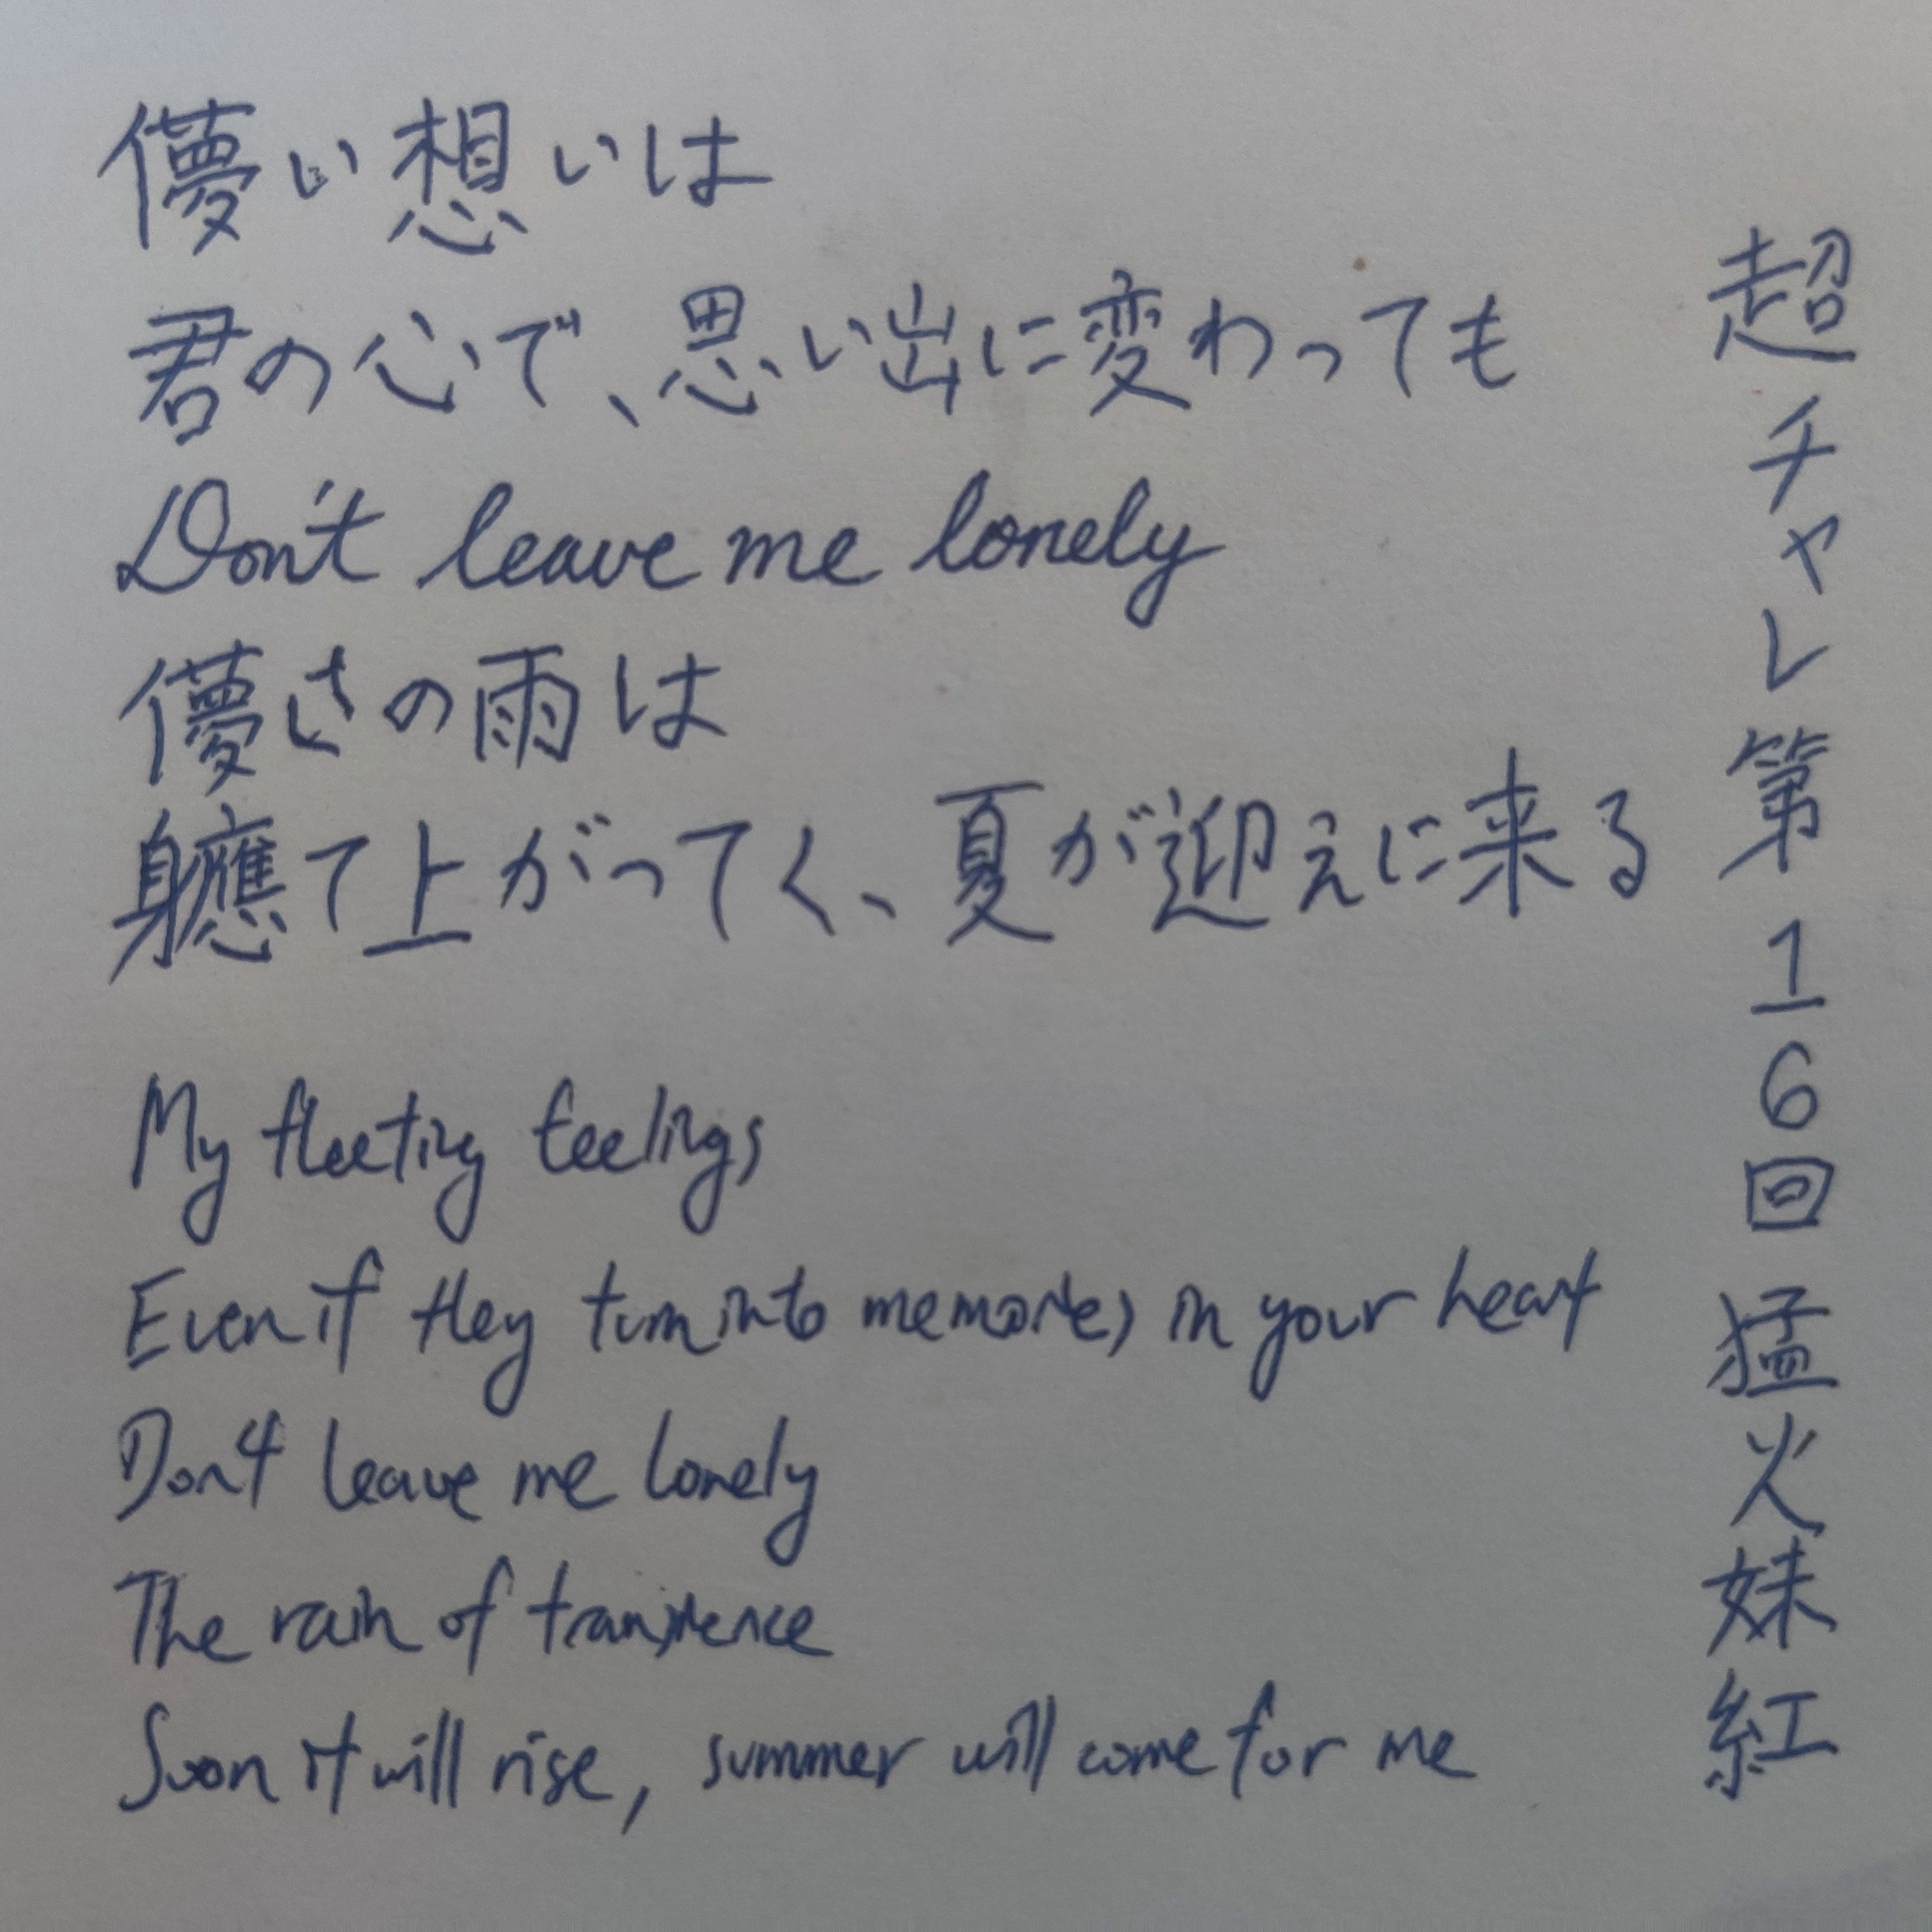 儚い想いは
君の心で、思い出に変わっても
Don't leave me lonely
儚さの雨は
軈て上がってく、夏が迎えに来る
My fleeting feelings
Even if they turn into memories in your heart
Don't leave me lonely
The rain of transience
Soon it will rise, summer will come for me
超チャレ第16回猛火妹紅